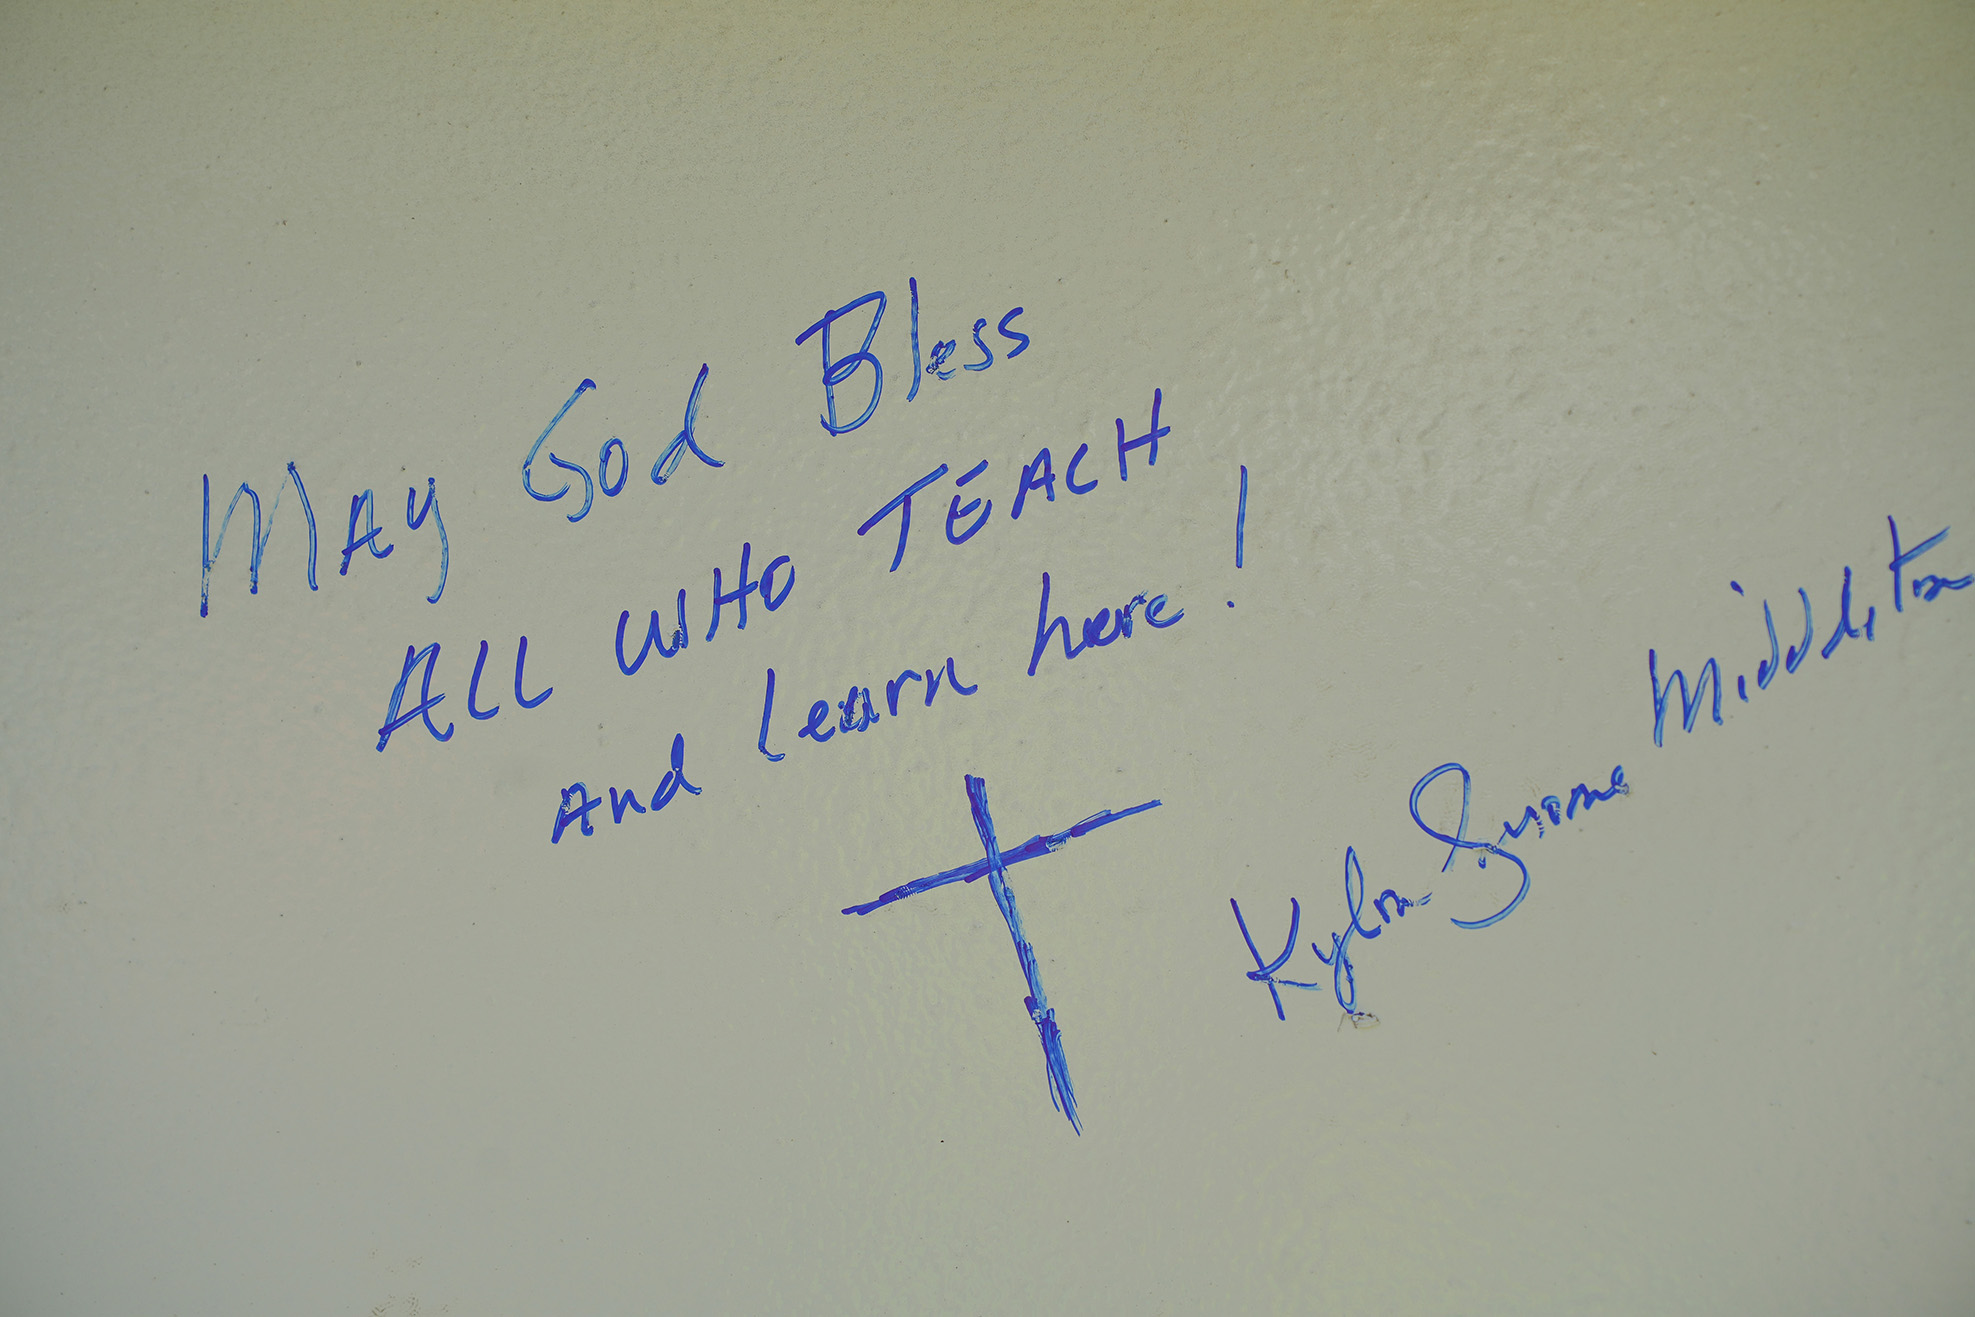 May God Bless
ALL WHO TEACH
And learn here!
Kylon Middleton